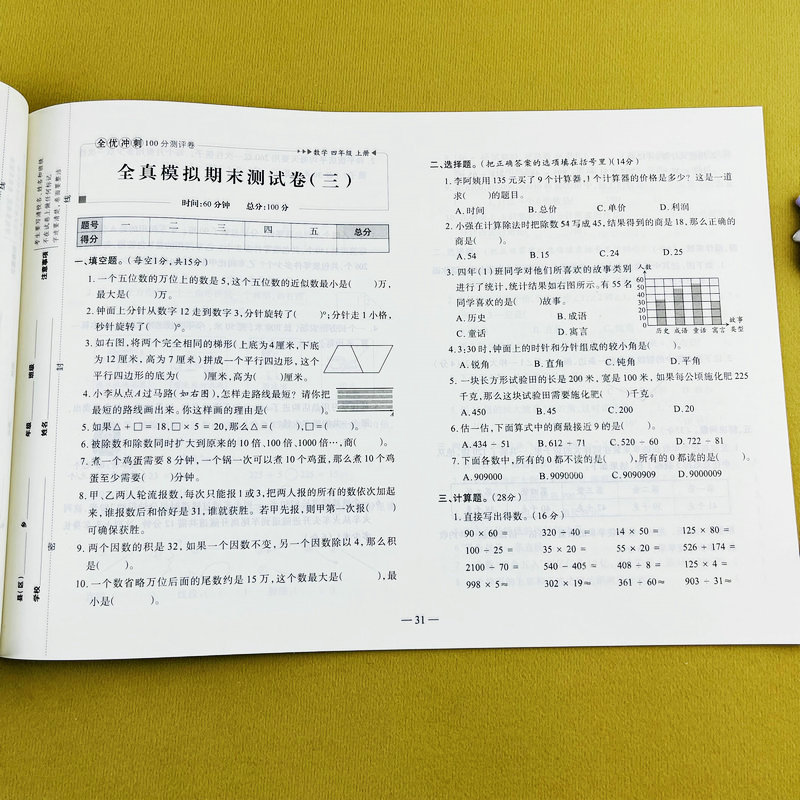 全优冲刺100分测评卷
▸▸▶数学 四年级 上册◀
全真模拟期末测试卷(三)
时间:60分钟 总分:100分
题号 一 二 三 四 五 总分
得分
一、填空题。(每空1分,共15分)
1. 一个五位数的万位上的数是5,这个五位数的近似数最小是( )万,
最大是( )万。
2. 钟面上分针从数字12走到数字3,分针旋转了( )°;分针走1小格,
秒针旋转了( )°。
3. 如右图,将两个完全相同的梯形(上底为4厘米,下底
为12厘米,高为7厘米)拼成一个平行四边形,这个
平行四边形的底为( )厘米,高为( )厘米。
4. 小李从点A过马路(如右图),怎样走路线最短?请你把
最短的路线画出来。你这样画的理由是( )。
5. 如果△+□=18,□×5=20,那么△=( ),□=( )。
6. 被除数和除数同时扩大到原来的10倍、100倍、1000倍…,商( )。
7. 煮一个鸡蛋需要8分钟,一个锅一次可以煮10个鸡蛋,那么煮10个鸡
蛋至少需要( )分钟。
8. 甲、乙两人轮流报数,每次只能报1或3,把两人报的所有的数依次加起
来,谁报数后和恰好是31,谁就获胜。若甲先报,则甲第一次报( )
可确保获胜。
9. 两个因数的积是32,如果一个因数不变,另一个因数除以4,那么积
是( )。
10. 一个数省略万位后面的尾数约是15万,这个数最大是( ),最
小是( )。
二、选择题。(把正确答案的选项填在括号里)(14分)
1. 李阿姨用135元买了9个计算器,1个计算器的价格是多少?这是一道
求( )的题目。
A. 时间 B. 总价 C. 单价 D. 利润
2. 小强在计算除法时把除数54写成45,结果得到的商是18,那么正确的
商是( )。
A. 54 B. 15 C. 24 D. 25
3. 四年(1)班同学对他们所喜欢的故事类别
进行了统计,统计结果如右图所示。有55名
同学喜欢的是( )故事。
A. 历史 B. 成语
C. 童话 D. 寓言
人数
60
50
40
30
20
10
0
历史 成语 童话 寓言
故事
类型
4. 3:30时,钟面上的时针和分针组成的较小角是( )。
A. 锐角 B. 直角 C. 钝角 D. 平角
5. 一块长方形试验田的长是200米,宽是100米,如果每公顷施化肥225
千克,那么这块试验田需要施化肥( )千克。
A. 450 B. 45 C. 200 D. 20
6. 估一估,下面算式中的商最接近9的是( )。
A. 434÷51 B. 612÷71 C. 520÷60 D. 722÷81
7. 下面各数中,所有的0都不读的是( ),所有的0都读的是( )。
A. 909000 B. 9090000 C. 9090909 D. 9000009
三、计算题。(28分)
1. 直接写出得数。(16分)
90×60= 320÷40= 14×50= 125×80=
100÷25= 35×20= 55×20= 526+174=
2100÷70= 540-405= 408÷8= 125×4=
998×5≈ 302×19≈ 361÷60≈ 903÷31≈
— 31 —
注意事项
考生要写清校名、姓名和班级
不在试卷上做任何标记
字迹要清楚,卷面要整洁
县(区) 乡
学校
年级 班级
姓名
密
封
线